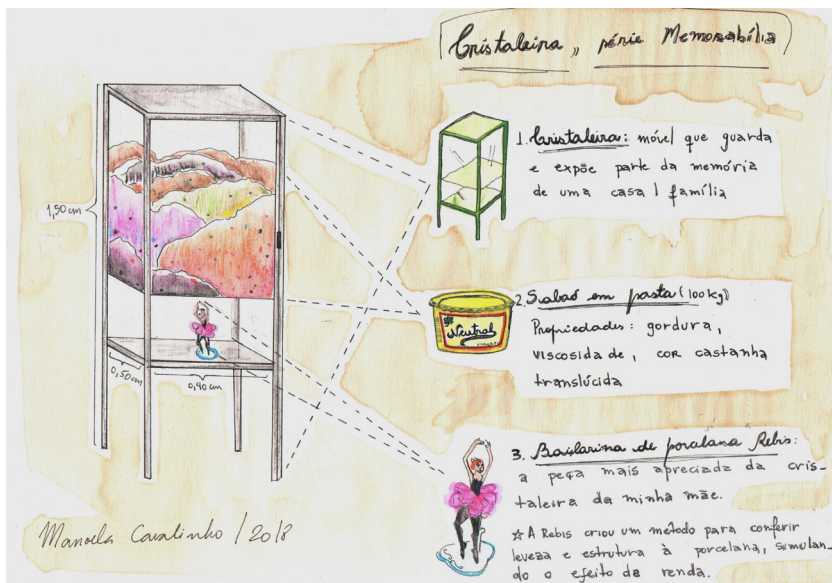 Cristaleira, série Memorabília
1. Cristaleira: móvel que guarda
e expõe parte da memória
de uma casa | família
1,50cm
0,50cm
0,40cm
Neutral
2. Sabão em pasta (100kg)
Propriedades: gordura,
viscosidade, cor castanha
translúcida
3. Bailarina de porcelana Rebis:
a peça mais apreciada da cris-
taleira da minha mãe.
☆ A Rebis criou um método para conferir
leveza e estrutura à porcelana, simulan-
do o efeito da renda.
Manoela Cavalinho / 2018